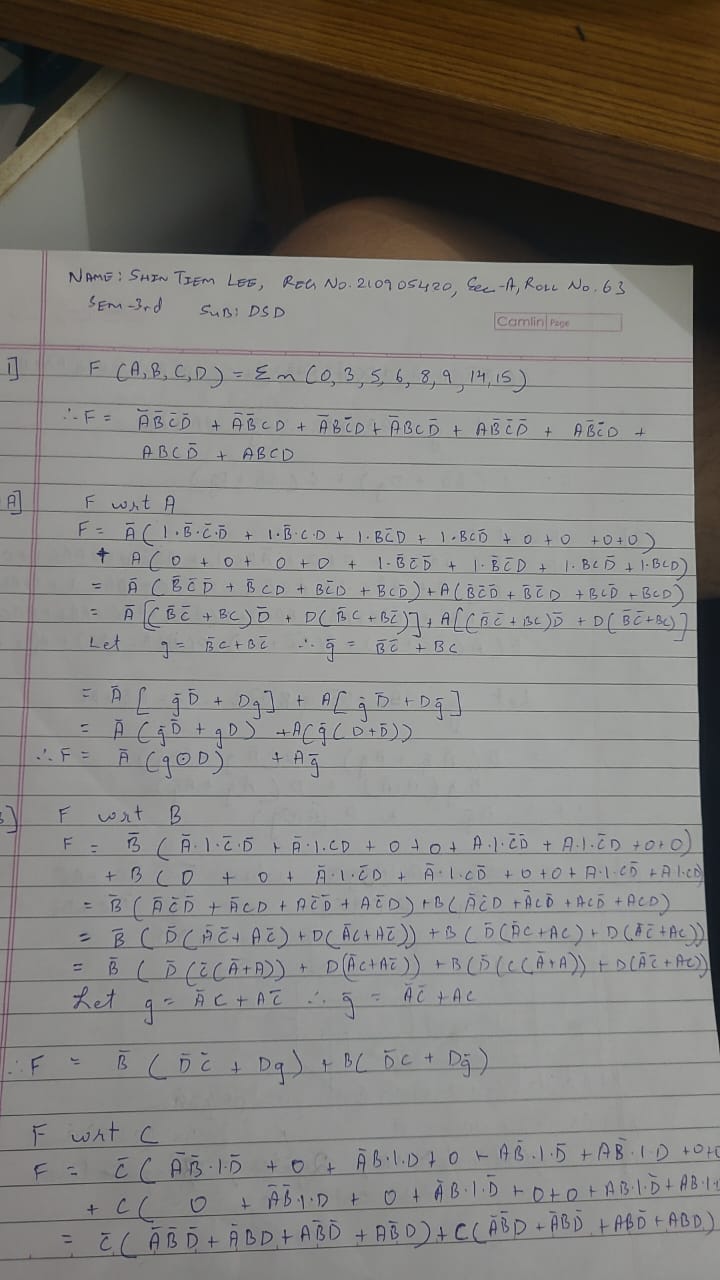 NAME: SHIN TIEM LEE, REG No. 210905420, Sec-A, ROLL No. 63
SEM-3rd SUB: DSD
Camlin Page
1] F (A,B,C,D) = Σm (0, 3, 5, 6, 8, 9, 14, 15)
∴ F = A̅B̅C̅D̅ + A̅B̅CD + A̅BC̅D + A̅BCD̅ + AB̅C̅D̅ + AB̅C̅D +
ABCD̅ + ABCD
A] F wrt A
F = A̅ (1·B̅·C̅·D̅ + 1·B̅·C·D + 1·BC̅D + 1·BCD̅ + 0 + 0 + 0 + 0)
+ A (0 + 0 + 0 + 0 + 1·B̅C̅D̅ + 1·B̅C̅D + 1·BCD̅ + 1·BCD)
= A̅ (B̅C̅D̅ + B̅CD + BC̅D + BCD̅) + A (B̅C̅D̅ + B̅C̅D + BCD̅ + BCD)
= A̅ [(B̅C̅ + BC)D̅ + D(B̅C + BC̅)] + A[(B̅C̅ + BC)D̅ + D(B̅C̅ + BC)]
Let g = B̅C + BC̅ ∴ g̅ = B̅C̅ + BC
= A̅ [g̅D̅ + Dg] + A[g̅D̅ + Dg̅]
= A̅ (g̅D̅ + gD) + A(g̅(D + D̅))
∴ F = A̅ (g⊙D) + Ag̅
] F wrt B
F = B̅ (A̅·1·C̅·D̅ + A̅·1·CD + 0 + 0 + A·1·C̅D̅ + A·1·C̅D + 0+0)
+ B (0 + 0 + A̅·1·C̅D + A̅·1·CD̅ + 0 + 0 + A·1·CD̅ + A1·CD)
= B̅ (A̅C̅D̅ + A̅CD + AC̅D̅ + AC̅D) + B (A̅C̅D + A̅CD̅ + ACD̅ + ACD)
= B̅ (D̅(A̅C̅ + AC̅) + D(A̅C + AC̅)) + B (D̅(A̅C + AC) + D(A̅C̅ + AC))
= B̅ (D̅(C̅(A̅+A)) + D(A̅C + AC̅)) + B(D̅(C(A̅+A)) + D(A̅C̅ + AC))
Let g = A̅C + AC̅ ∴ g̅ = A̅C̅ + AC
∴ F = B̅ (D̅C̅ + Dg) + B(D̅C + Dg̅)
F wrt C
F = C̅ (A̅B̅·1·D̅ + 0 + A̅B·1·D + 0 + AB̅·1·D̅ + AB̅·1·D + 0+0
+ C (0 + A̅B̅·1·D + 0 + A̅B·1·D̅ + 0+0 + AB·1·D̅ + AB·1·
= C̅ (A̅B̅D̅ + A̅BD + AB̅D̅ + AB̅D) + C(A̅B̅D + A̅BD̅ + ABD̅ + ABD)